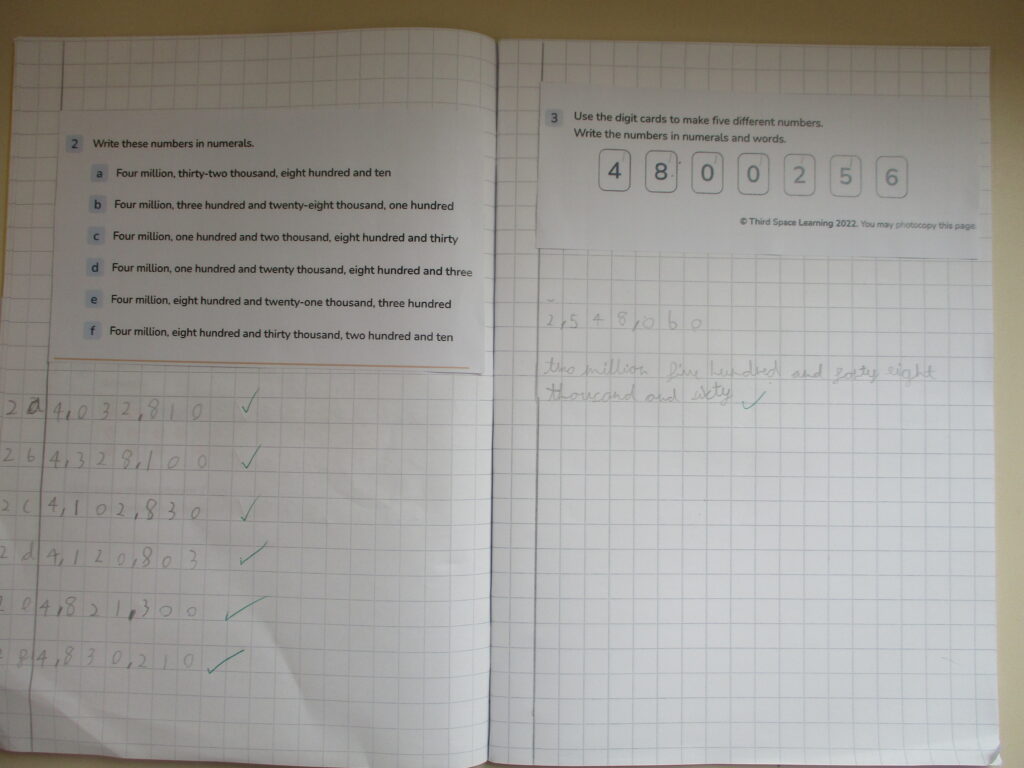 2 Write these numbers in numerals.
a Four million, thirty-two thousand, eight hundred and ten
b Four million, three hundred and twenty-eight thousand, one hundred
c Four million, one hundred and two thousand, eight hundred and thirty
d Four million, one hundred and twenty thousand, eight hundred and three
e Four million, eight hundred and twenty-one thousand, three hundred
f Four million, eight hundred and thirty thousand, two hundred and ten
2a 4,032,810
2b 4,328,100
2c 4,102,830
2d 4,120,803
4,821,300
4,830,210
3 Use the digit cards to make five different numbers.
Write the numbers in numerals and words.
4 8 0 0 2 5 6
© Third Space Learning 2022. You may photocopy this page.
2,548,060
two million five hundred and eight
thousand and